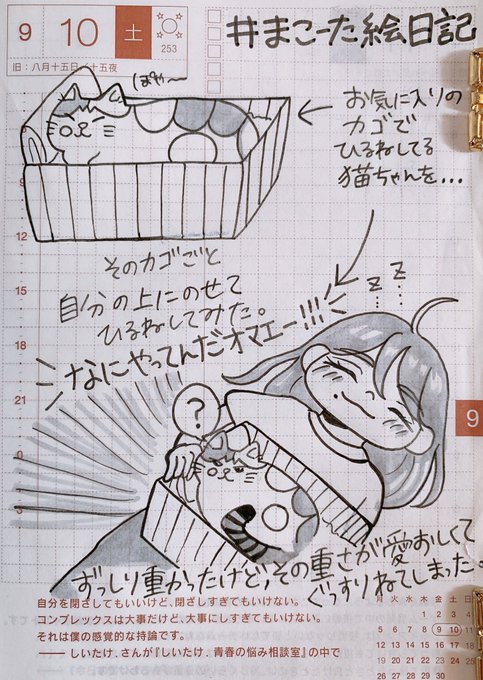 9 10 土
253
旧:八月十五日/十五夜
#まこーた絵日記
ぽや〜
お気に入りの
カゴで
ひるねしてる
猫ちゃんを...
12
15
18
21
0
そのカゴごと
自分の上にのせて
ひるねしてみた。
z z
なにやってんだオマエー!!!
?
9
ずっしり重かったけど,その重さが愛おしくて
ぐっすりねてしまった。
自分を閉ざしてもいいけど、閉ざしすぎてもいけない。
コンプレックスは大事だけど、大事にしすぎてもいけない。
それは僕の感覚的な持論です。
—— しいたけ.さんが『しいたけ.青春の悩み相談室』の中で
月 火 水 木 金 土 日
1 2 3 4
5 6 7 8 9 10 11
12 13 14 15 16 17 18
19 20 21 22 23 24 25
26 27 28 29 30